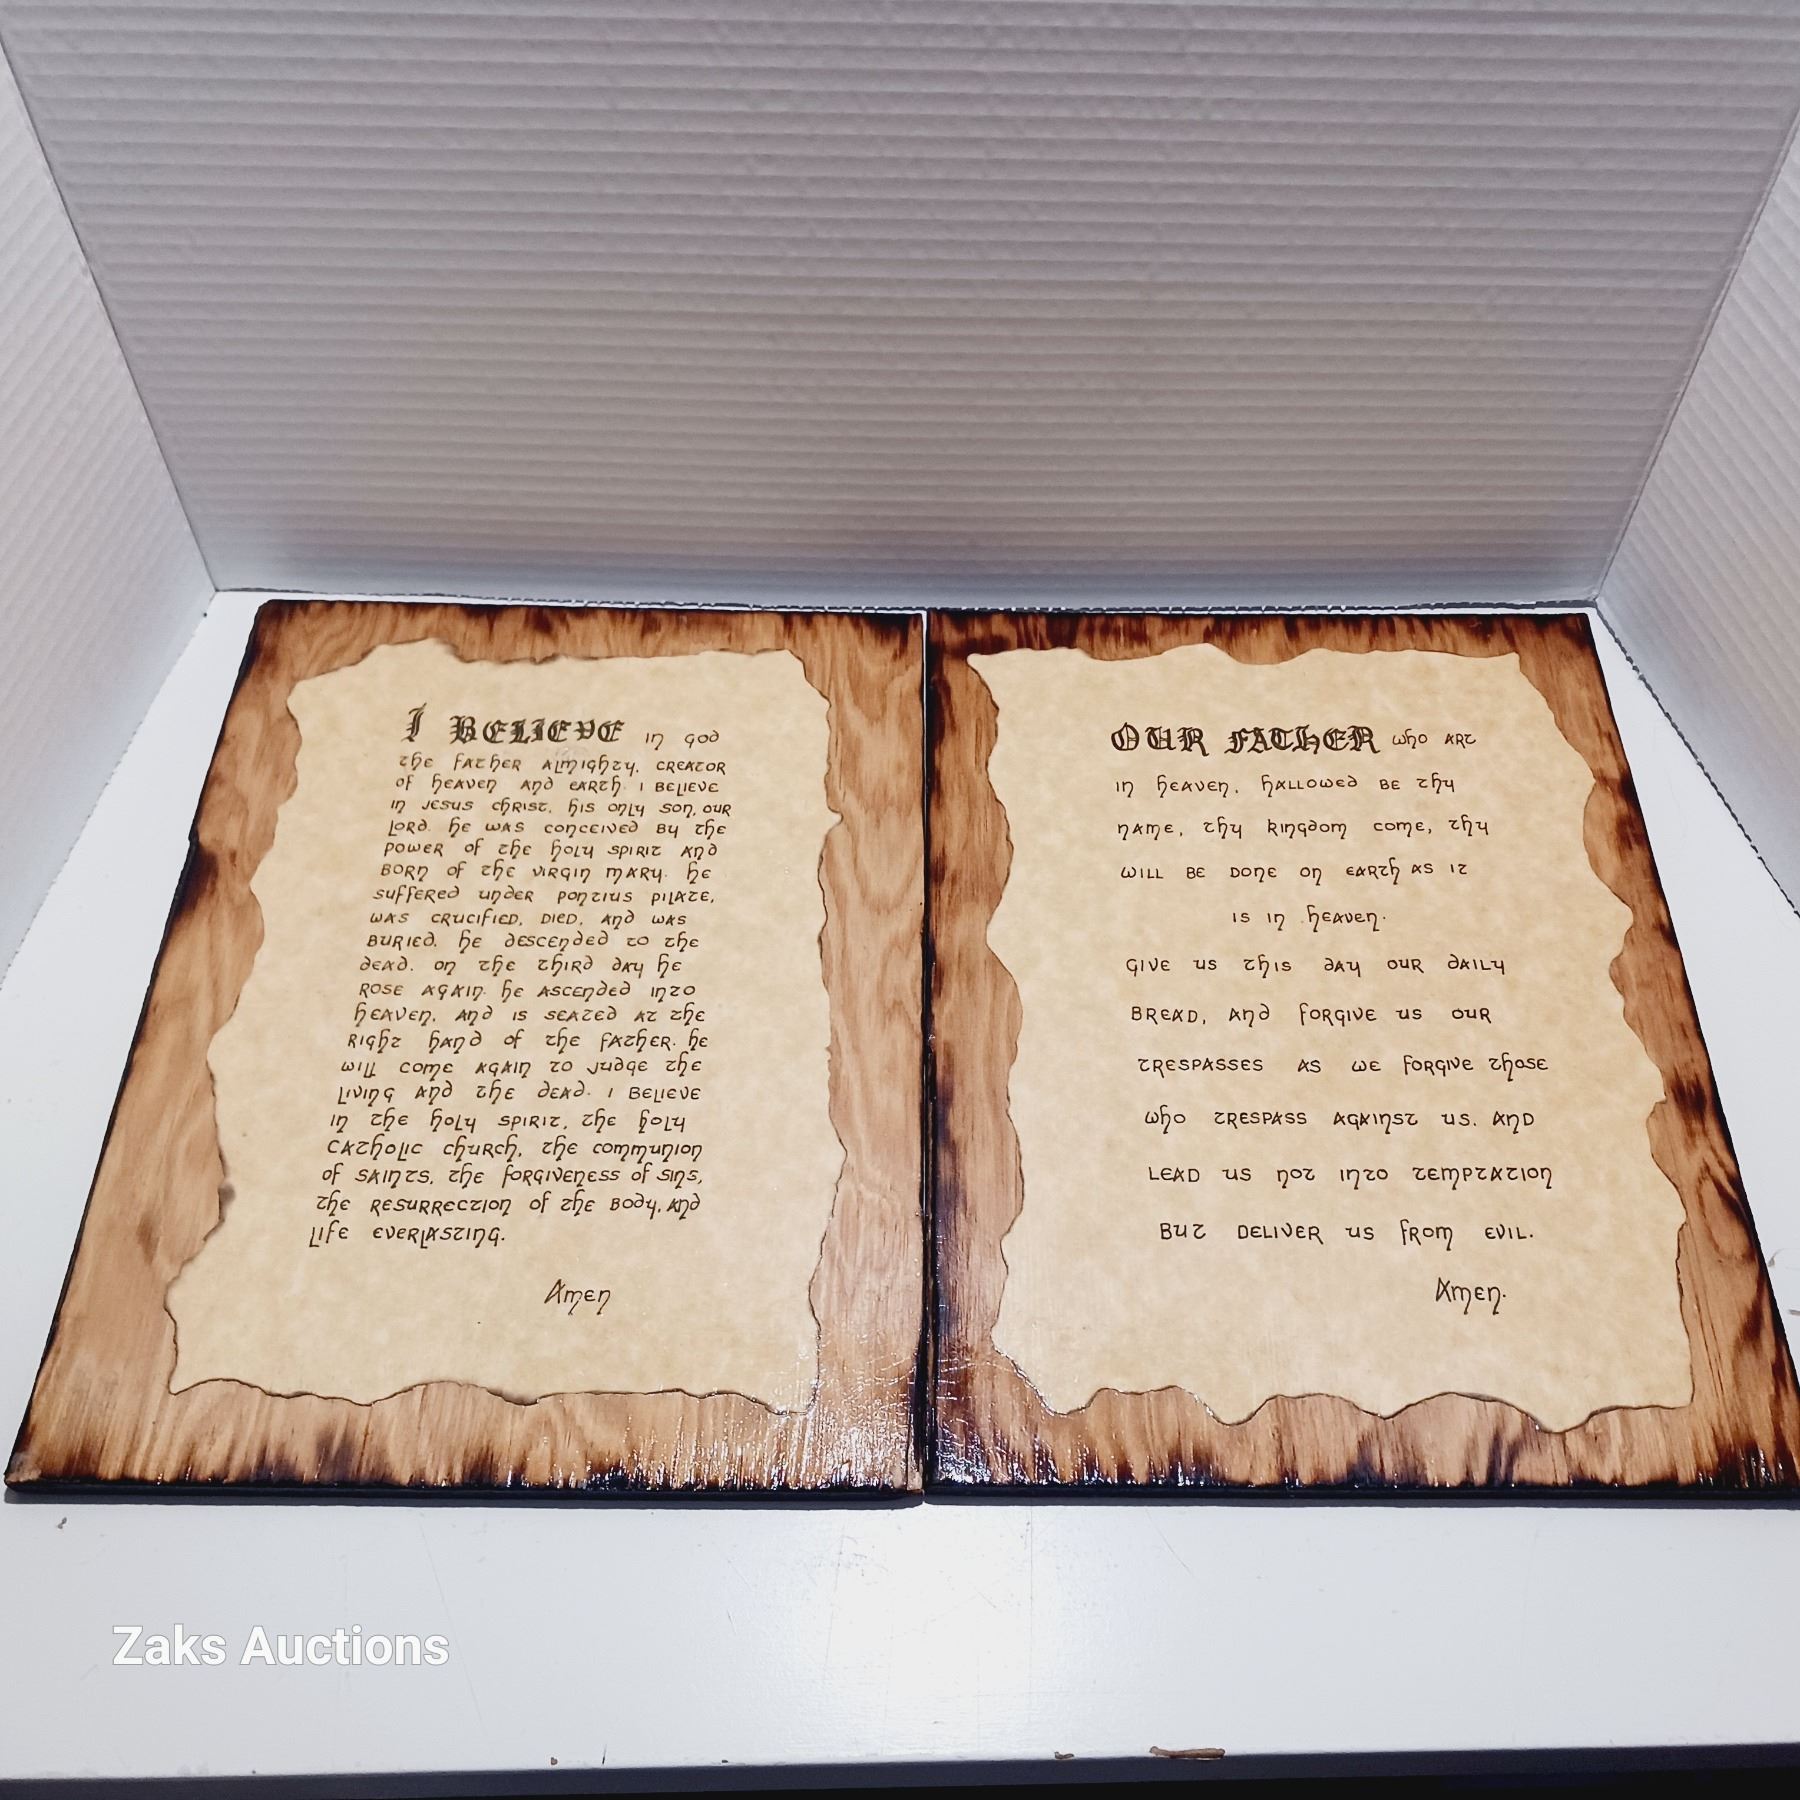 I BELIEVE in God
the Father Almighty, Creator
of heaven and earth. I believe
in Jesus Christ, his only Son, our
Lord. He was conceived by the
power of the Holy Spirit and
born of the Virgin Mary. He
suffered under Pontius Pilate,
was crucified, died, and was
buried. He descended to the
dead. On the third day he
rose again. He ascended into
heaven, and is seated at the
right hand of the Father. He
will come again to judge the
living and the dead. I believe
in the Holy Spirit, the holy
catholic church, the communion
of saints, the forgiveness of sins,
the resurrection of the body, and
life everlasting.
Amen
OUR FATHER who art
in heaven, hallowed be thy
name, thy kingdom come, thy
will be done on earth as it
is in heaven.
Give us this day our daily
bread, and forgive us our
trespasses as we forgive those
who trespass against us. And
lead us not into temptation
but deliver us from evil.
Amen.
Zaks Auctions